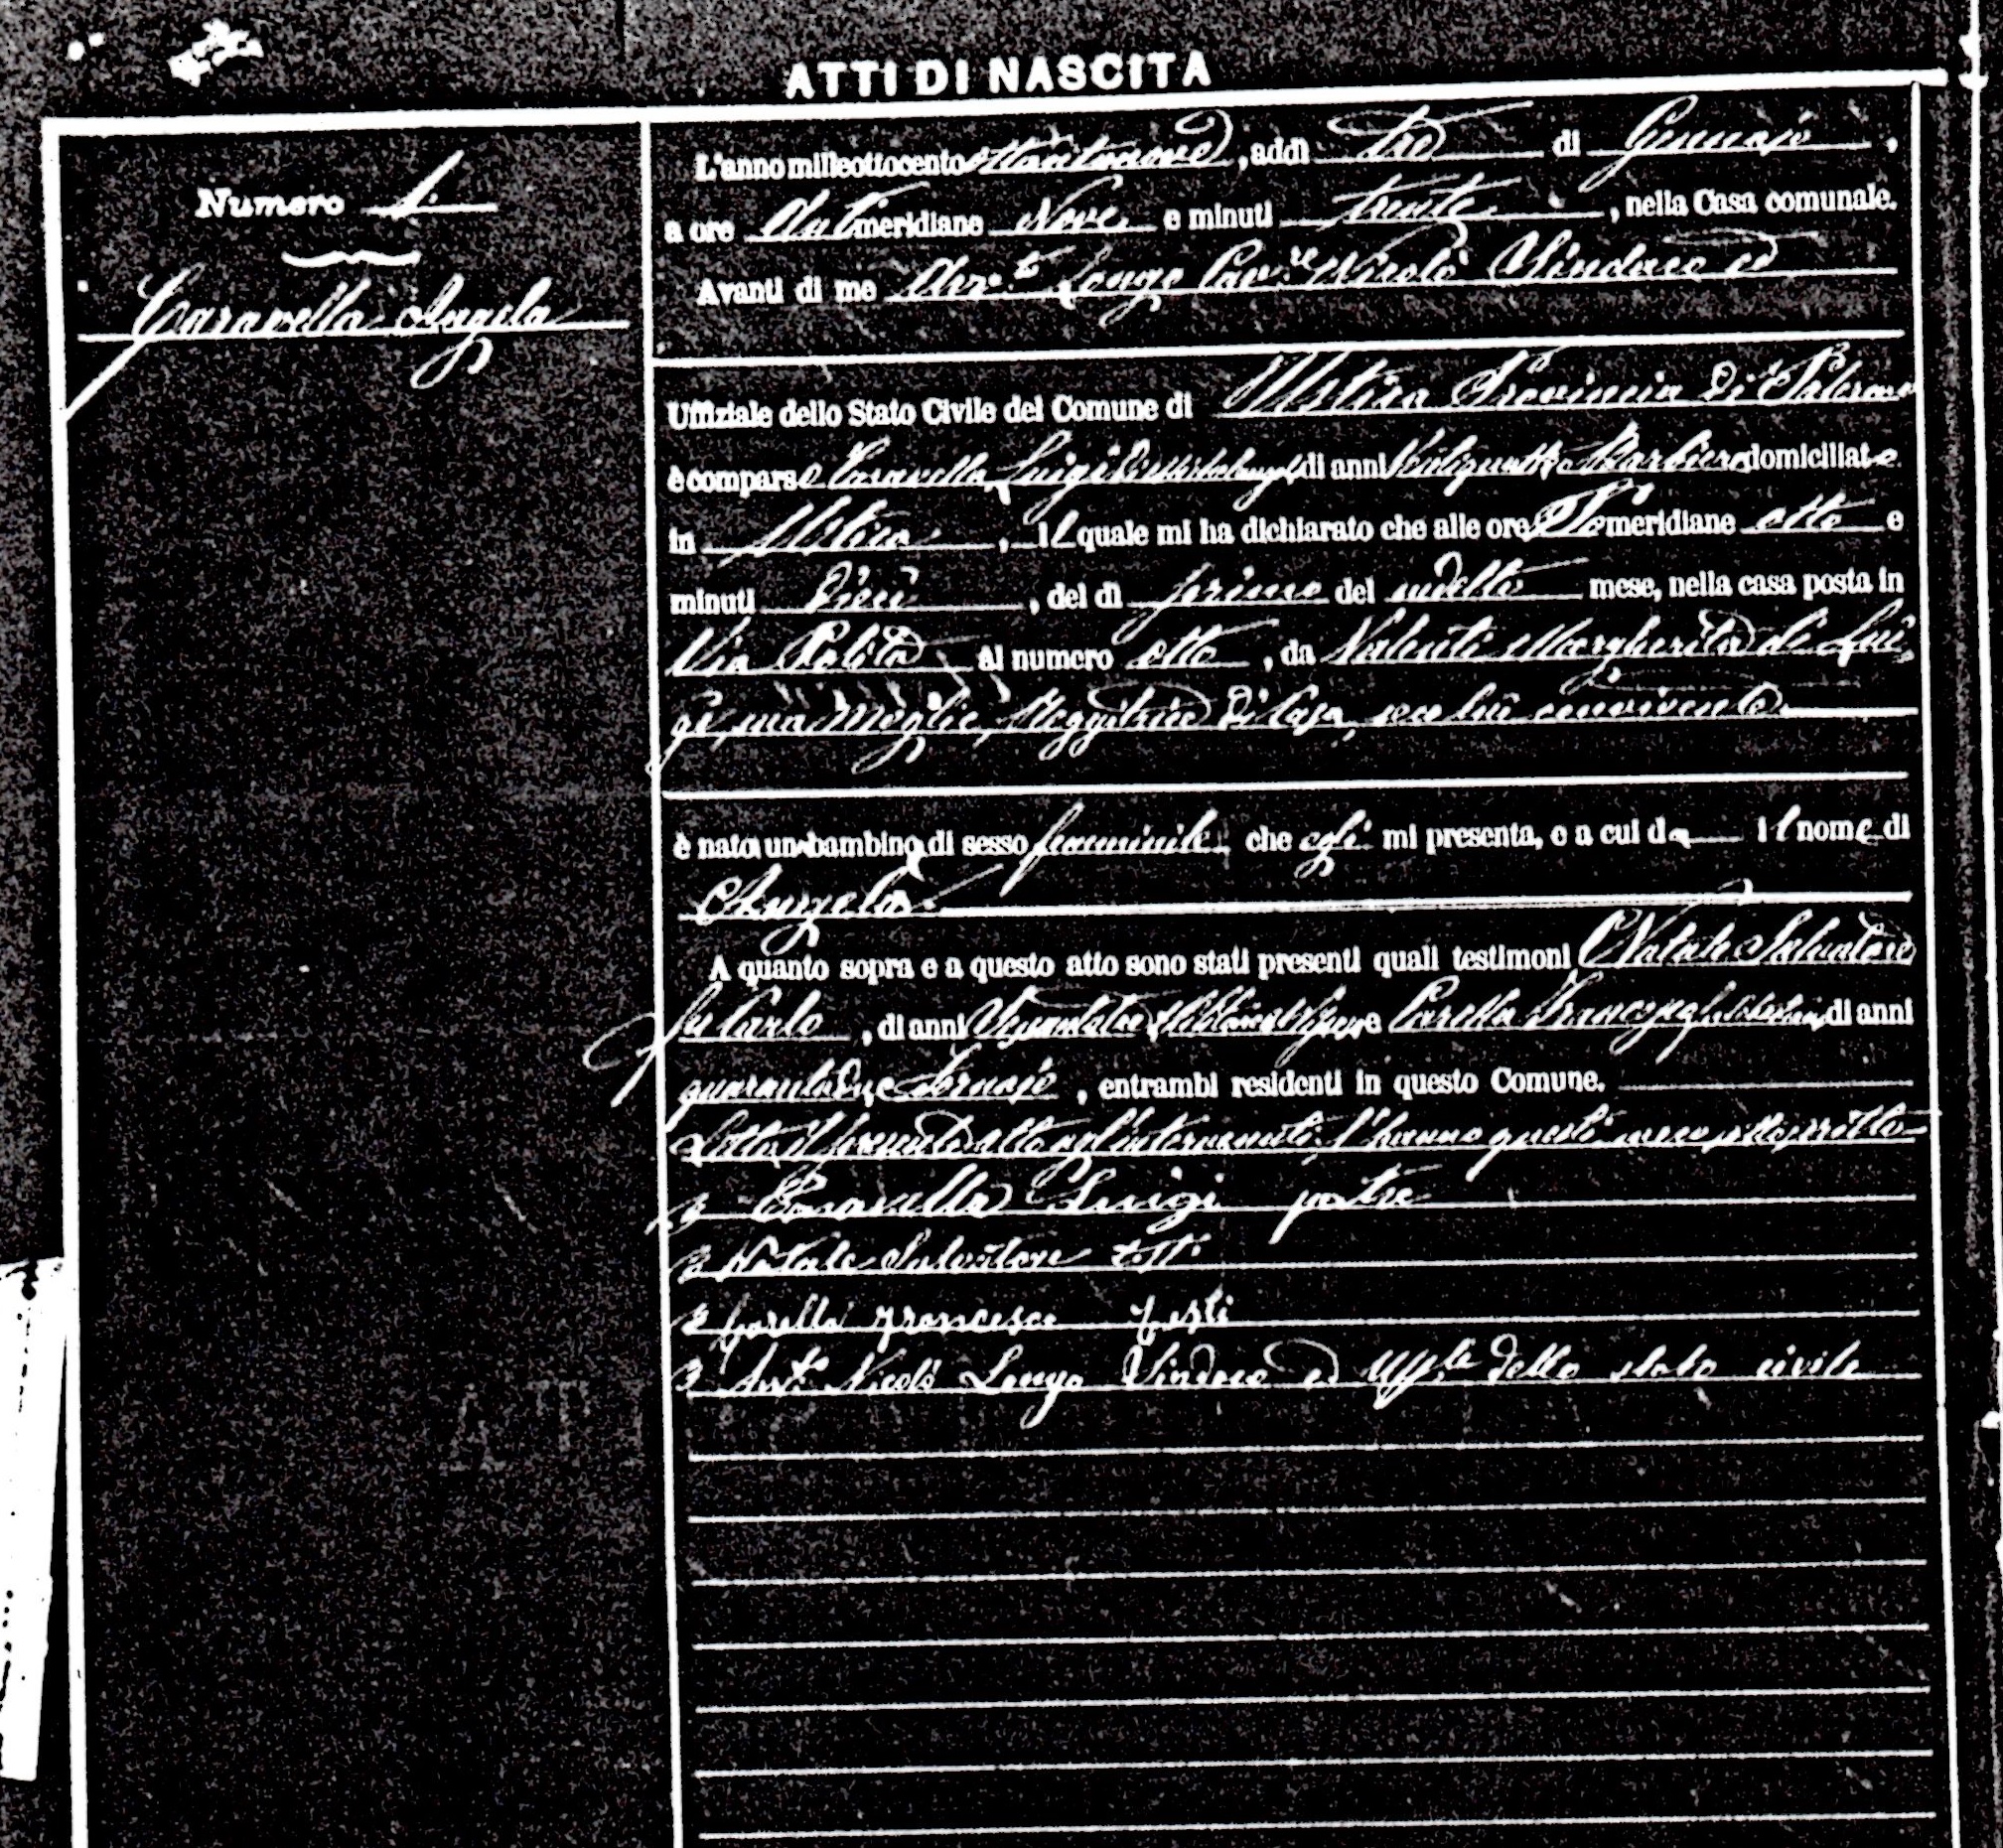 ATTI DI NASCITA
Numero 1.
Caravella Angela
L'anno milleottocento ottantanove, addì tre di Gennajo,
a ore Antimeridiane Nove e minuti trenta, nella Casa comunale.
Avanti di me Avv.to Longo Cav.re Nicolò Sindaco ed
Uffiziale dello Stato Civile del Comune di Ustica Provincia di Palermo
è comparso Caravella Luigi di Michelangelo di anni Barbiere domiciliato
in Ustica, il quale mi ha dichiarato che alle ore Po meridiane otto e
minuti dieci, del dì primo del sudetto mese, nella casa posta in
Via al numero otto, da Valenti Margherita di Lui
gi, sua moglie, Reggitrice di Casa, seco lui convivente
è nata una bambina di sesso femminile che egli mi presenta, e a cui da il nome di
Angela
A quanto sopra e a questo atto sono stati presenti quali testimoni Natale Salvatore
fu Carlo, di anni e Carella Francesco di anni
quarantadue Fornajo, entrambi residenti in questo Comune.
Letto il presente atto agl'intervenuti l'hanno questi meco sottoscritto
Caravella Luigi patre
Natale Salvatore testi
Carella Francesco testi
Avv.to Nicolò Longo Sindaco ed Uff.le dello stato civile